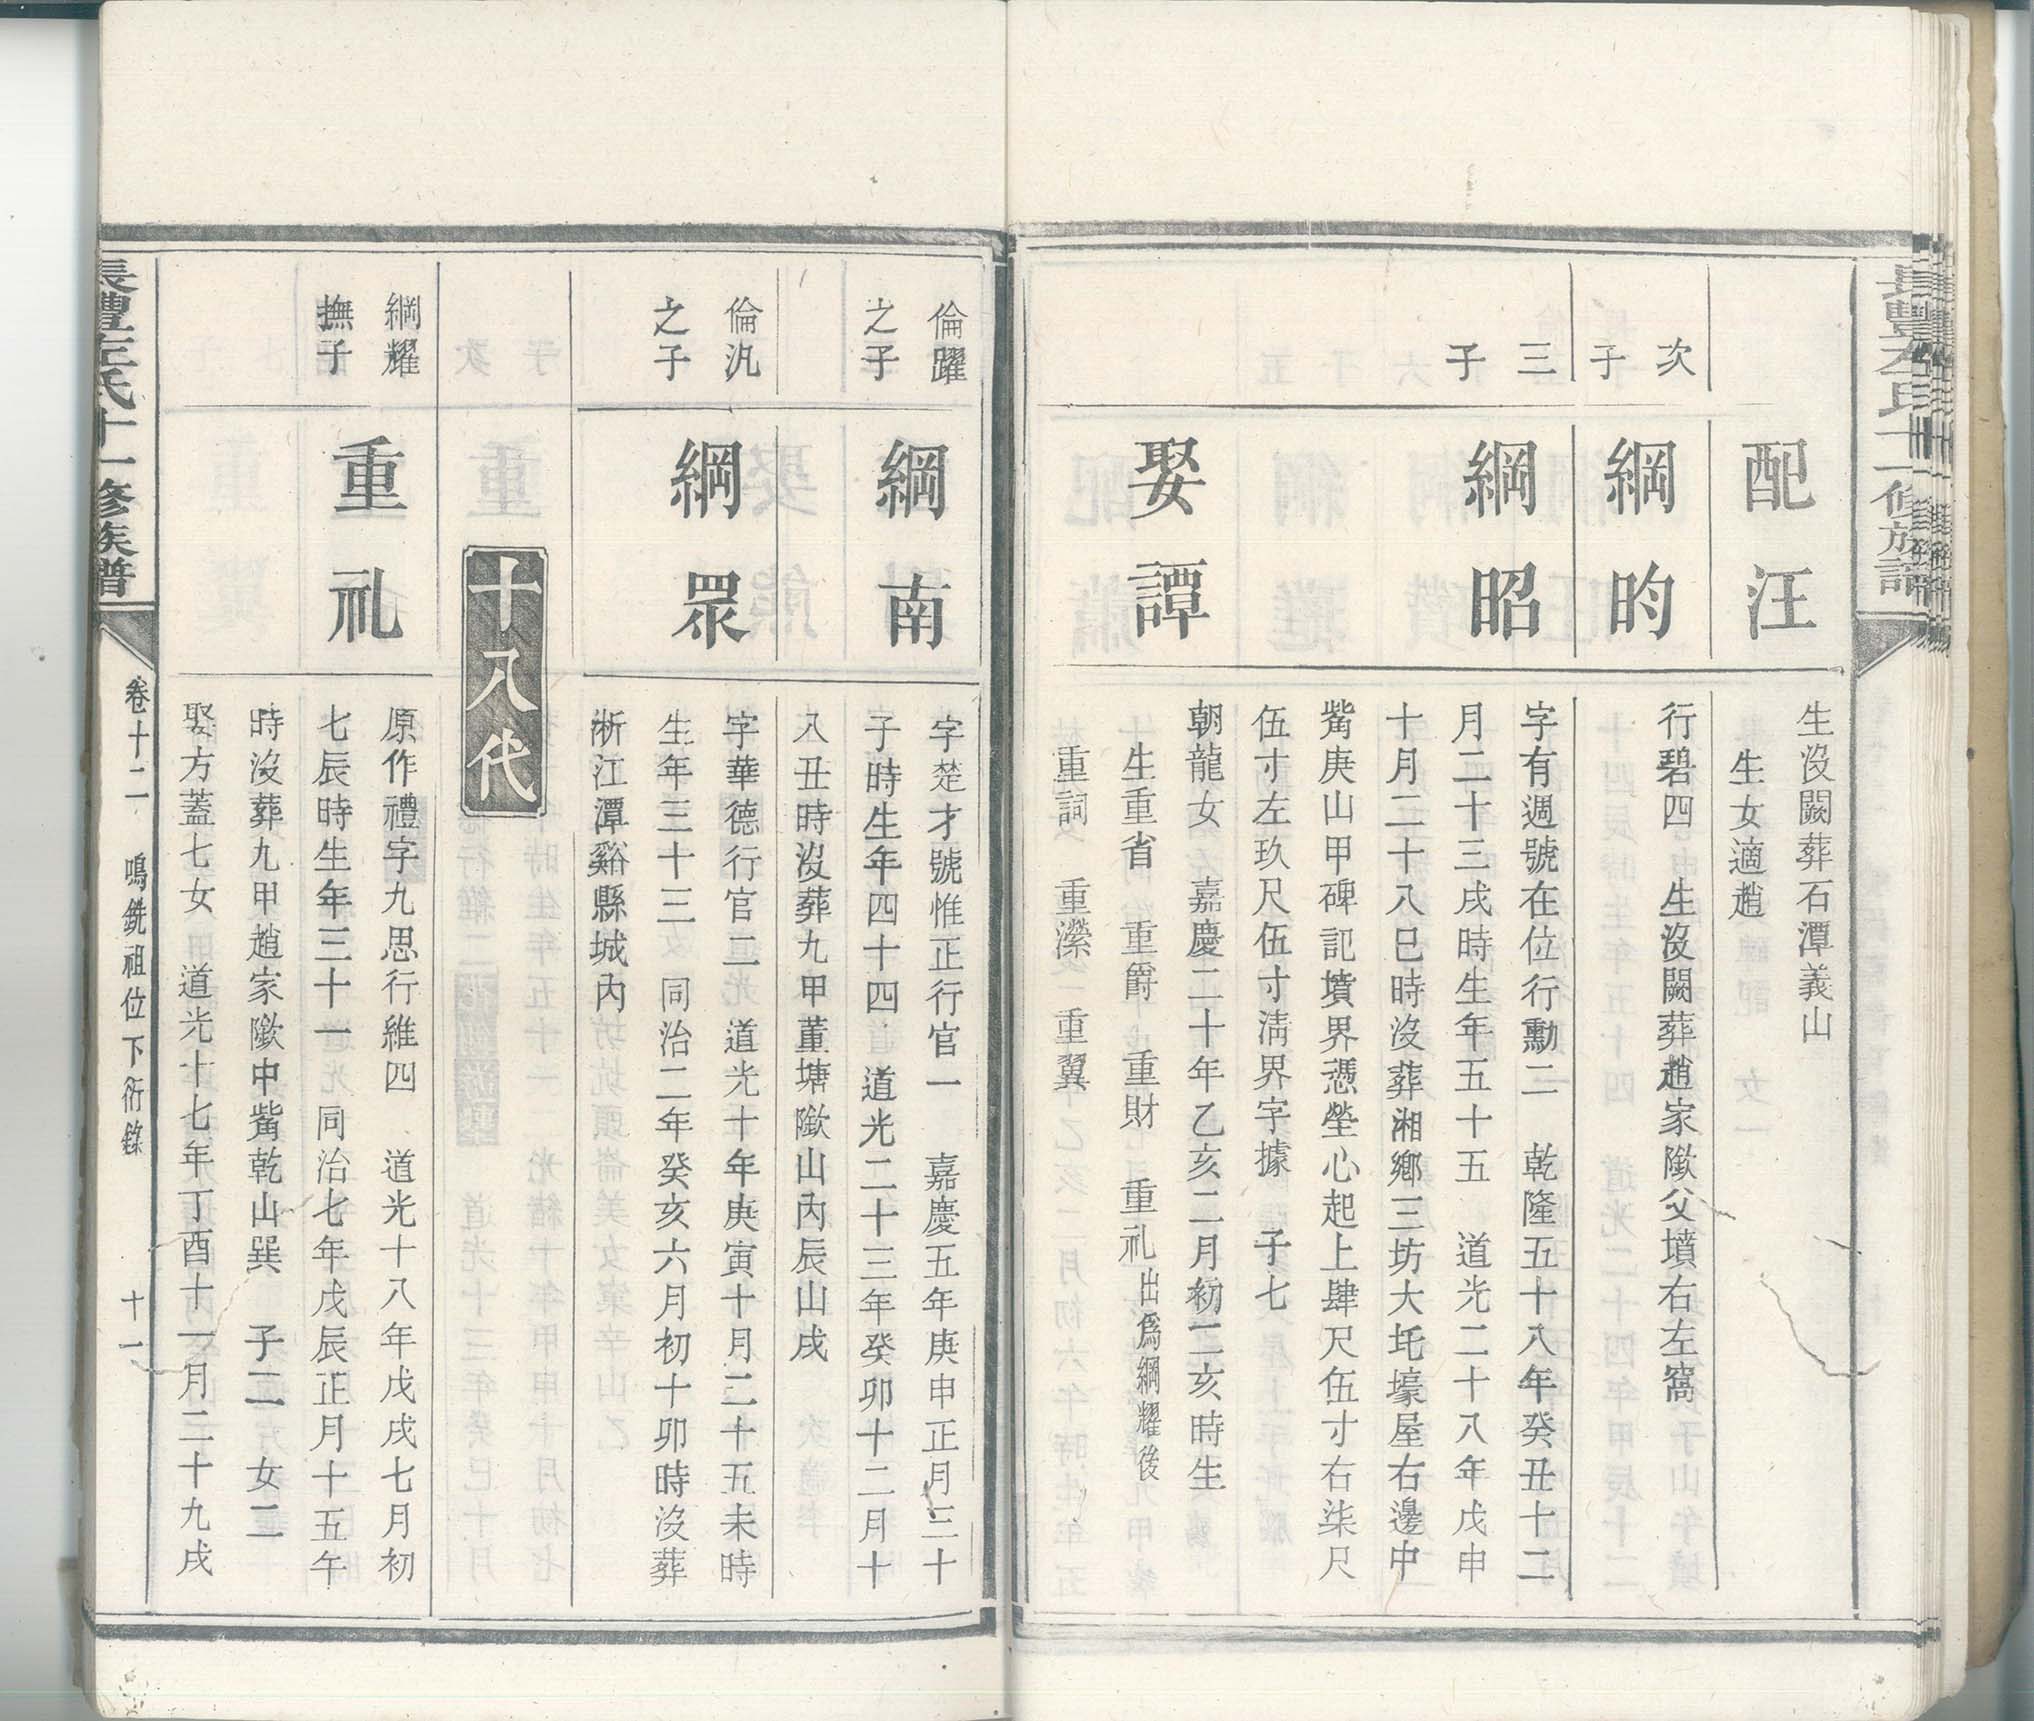 長豐左氏十一修族譜
配汪
生沒闕葬石潭義山
生女適趙
次子
綱昀
行碧四　生沒闕葬趙家隞父墳右左窩
三子
綱昭
字有週號在位行勳二　乾隆五十八年癸丑十二
月二十三戌時生年五十五　道光二十八年戊申
十月二十八巳時沒葬湘鄉三坊大坉壕屋右邊中
嘴庚山甲碑記墳界憑塋心起上肆尺伍寸右柒尺
伍寸左玖尺伍寸淸界字據　子七
娶譚
朝龍女　嘉慶二十年乙亥二月初二亥時生
生重省　重爵　重財　重礼出爲綱耀後
重詞　重瀠　重翼
倫躍之子
綱南
字楚才號惟正行官一　嘉慶五年庚申正月三十
子時生年四十四　道光二十三年癸卯十二月十
八丑時沒葬九甲董塘隞山內辰山戌
倫汎之子
綱眾
字華德行官二　道光十年庚寅十月二十五未時
生年三十三　同治二年癸亥六月初十卯時沒葬
淅江潭谿縣城內
十八代
綱耀撫子
重礼
原作禮字九思行維四　道光十八年戊戌七月初
七辰時生年三十一　同治七年戊辰正月十五午
時沒葬九甲趙家隞中嘴乾山巽　子二　女二
娶方蓋七女　道光十七年丁酉十一月二十九戌
長豐左氏十一修族譜
卷十二　鳴銑祖位下衍錄　十一